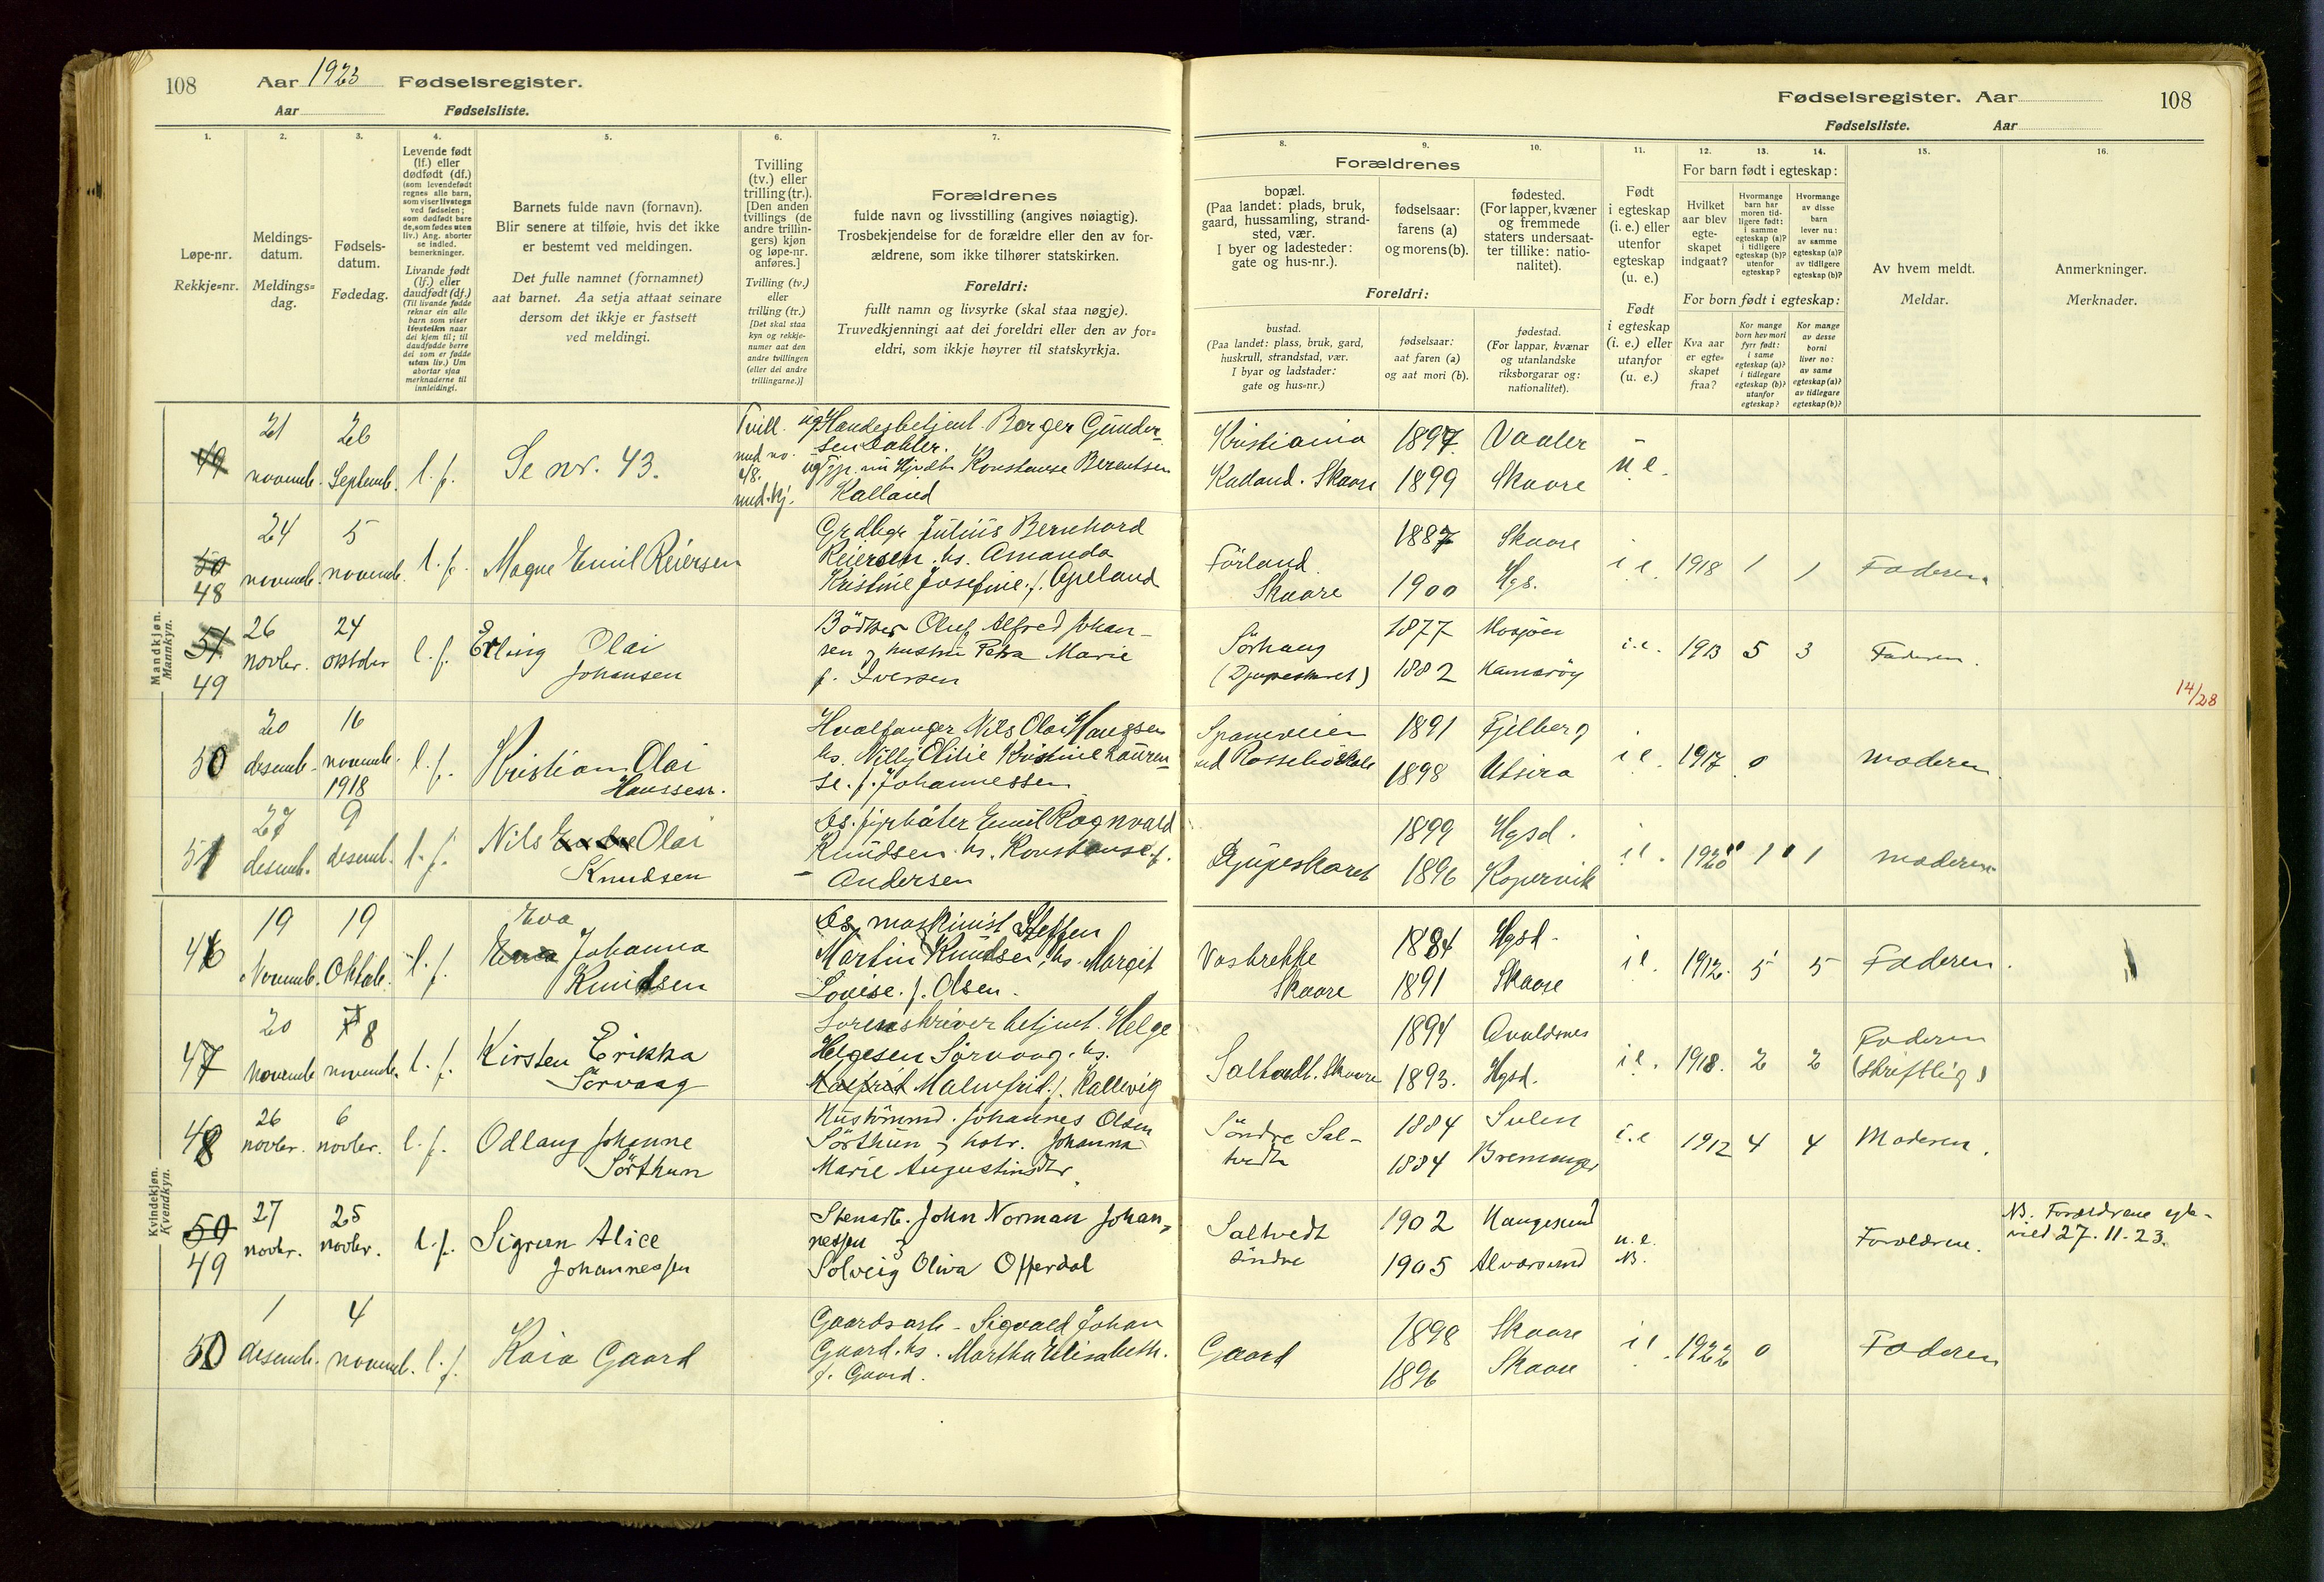 108 Aar 1923 Fødselsregister.
Aar Fødselsliste.
Fødselsregister. Aar 108
Fødselsliste. Aar
1. 2. 3. 4. 5. 6. 7.
8. 9. 10. 11. 12. 13. 14. 15. 16.
Løpe-nr.
Rekkje=nr.
Meldings-
datum.
Meldings=
dag.
Fødsels-
datum.
Fødedag.
Levende født
(lf.) eller
dødfødt (df.)
(som levendefødt
regnes alle barn,
som viser livstegn
ved fødselen;
som dødfødt bare
de, som fødes uten
liv.) Ang. aborter
se indled.
bemerkninger.
Livande født
(lf.) eller
daudfødt (df.)
(Til livande fødde
reknar ein alle
barn som viser
livsteikn naar
dei kjem til; til
daudfødde berre
dei som er fødde
utan liv.) Um
abortar sjaa
merknaderne til
innleidingi.
Barnets fulde navn (fornavn).
Blir senere at tilføie, hvis det ikke
er bestemt ved meldingen.
Det fulle namnet (fornamnet)
aat barnet. Aa setja attaat seinare
dersom det ikkje er fastsett
ved meldingi.
Tvilling
(tv.) eller
trilling (tr.).
[Den anden
tvillings (de
andre trillin-
gers) kjøn
og løpe-nr.
anføres.]
Tvilling (tv.)
eller
trilling (tr.)
[Det skal staa
kyn og rekkje-
numer aat den
andre tvillingen
(eller dei andre
trillingarne.)]
Forældrenes
fulde navn og livsstilling (angives nøiagtig).
Trosbekjendelse for de forældre eller den av for-
ældrene, som ikke tilhører statskirken.
Foreldri:
fullt namn og livsyrke (skal staa nøgje).
Truvedkjenningi aat dei foreldri eller den av for=
eldri, som ikkje høyrer til statskyrkja.
Forældrenes
bopæl.
(Paa landet: plads, bruk,
gaard, hussamling, strand-
sted, vær.
I byer og ladesteder:
gate og hus-nr.).
fødselsaar:
farens (a)
og morens (b).
fødested.
(For lapper, kvæner
og fremmede
staters undersaat-
ter tillike: natio-
nalitet).
Foreldri:
bustad.
(Paa landet: plass, bruk, gard,
huskrull, strandstad, vær.
I byar og ladstader:
gate og hus=nr.)
fødselsaar:
aat faren (a)
og aat mori (b).
fødestad.
(For lappar, kvænar
og utanlandske
riksborgarar og:
nationalitet).
Født
i egteskap
(i. e.) eller
utenfor
egteskap
(u. e.)
Født
i egteskap
(i. e.) eller
utanfor
(u. e.)
For barn født i egteskap:
Hvilket
aar blev
egte-
skapet
indgaat?
Hvormange
barn har
moren tid-
ligere født:
i samme
egteskap (a)?
i tidligere
egteskap (b)?
utenfor
egteskap?
Hvormange
av disse
barn
lever nu:
av samme
egteskap (a)?
av tidligere
egteskap (b)?
For born født i egteskap:
Kva aar
er egte-
skapet
fraa?
Kor mange
born hev mori
fyrr født:
i same
egteskap (a)?
i tidlegare
egteskap (b)?
utanfor
egteskap?
Kor mange
av desse
borni
liver no:
av same
egteskap (a)?
av tidlegare
egteskap (b)?
Av hvem meldt.
Meldar.
Anmerkninger.
Merknader.
Mandkjøn.
Mannkyn.
49 21 novemb. 26 Septemb. l. f. Se nr. 43. Tvill. med no. 48. Borger Gunder-
sen
Konstanse Berentsen
Kalland
Kristiania 1897 Vaaler
Skaare 1899 Skaare u. e.
50 48 24 novemb. 5 novemb. l. f. Magne Emil Reiersen
Grdbgr Julius Bernhard
Reiersen. hs. Amanda
Kristine Josefine. f. Apeland
Førland Skaare 1887 Skaare
1900 Hgs. i e. 1918 1 1 Faderen
51 49 26 novbr. 24 oktober l. f. Erling Olai
Johansen
Bødker Oluf Alfred Johan-
sen og hustru Petra Marie
f. Iversen
Sörhaug 1877 Mosjøen
(Djupeskaret) 1882 Hamarøy i. e. 1913 5 3 Faderen.
14/28
50 20 desemb. 16 novemb. 1918 l. f. Kristian Olai
Hanssen.
Hvalfanger Nils Olai Hanssen
hs. Nilly Otilie Kristine Lauren-
se. f. Johannessen
Spanneveien 1891 Fjelberg
1898 Utsira i e. 1917 0 moderen
51 27 desemb. 9 desemb. l. f. Nils Olai
Knudsen
Emil Rognvald
Knudsen. hs. Konstanse. f.
Andersen
Djupeskaret 1899 Hgsd.
1896 Kopervik i e. 1920 1 1 moderen
Kvindekjøn.
Kvendkyn.
46 19 Novemb. 19 Oktob. l. f. Eva
Johanna
Knudsen
Ds. maskinist Steffen
Martin Knudsen, hs. Margit
Lovise. f. Olsen.
Vasbrekke 1884 Hgsd.
Skaare 1891 Skaare i e. 1912. 5 5 Faderen.
47 20 novemb. 8 novemb. l. f. Kirsten Erikka
Sörvaag
Sorenskriverbetjent. Helge
Helgesen Sörvaag. hs.
Malmfrid f. Kallevig
Saltvedt. Skaare 1894 Avaldsnes
1893. Hgsd. i e. 1918. 2 2 Faderen
(Skriftlig)
48 26 novbr. 6 novbr. l. f. Odlaug Johanne
Sörthun
Johannes Olsen
Sörthun og hstr. Johanna
Marie Augustinsdtr.
Söndre Sal-
tvedt 1884 Sulen
1884 Bremanger i. e 1912 4 4 Moderen.
50 49 27 novbr. 25 novbr. l. f. Sigrun Alice
Johannessen
Stenarb. John Norman Johan-
nessen og
Solveig Oliva Offerdal
Saltvedt 1902 Haugesund
söndre 1905 Alversund u. e. NB. Forældrene. NB. Forældrene egte-
viet 27. 11. 23.
50 1 desemb. 4 novemb. l. f. Kaia Gaard
Gaardsarb - Sigvald Johan
Gaard. hs. Martha Elisabeth.
f. Gaard.
Gaard 1898 Skaare
1896 Skaare i e. 1922 0 Faderen